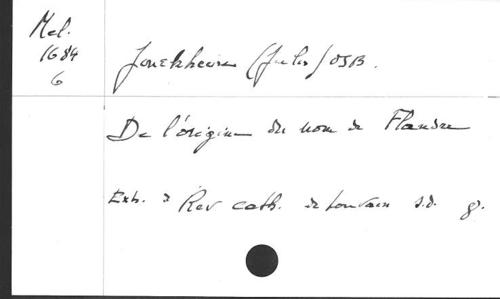 Mel.
1684
6
Jonckheere (Jules) OSB.
De l'origine du nom de Flandre
Extr. de Rev cath. de Louvain s.d. 8°.